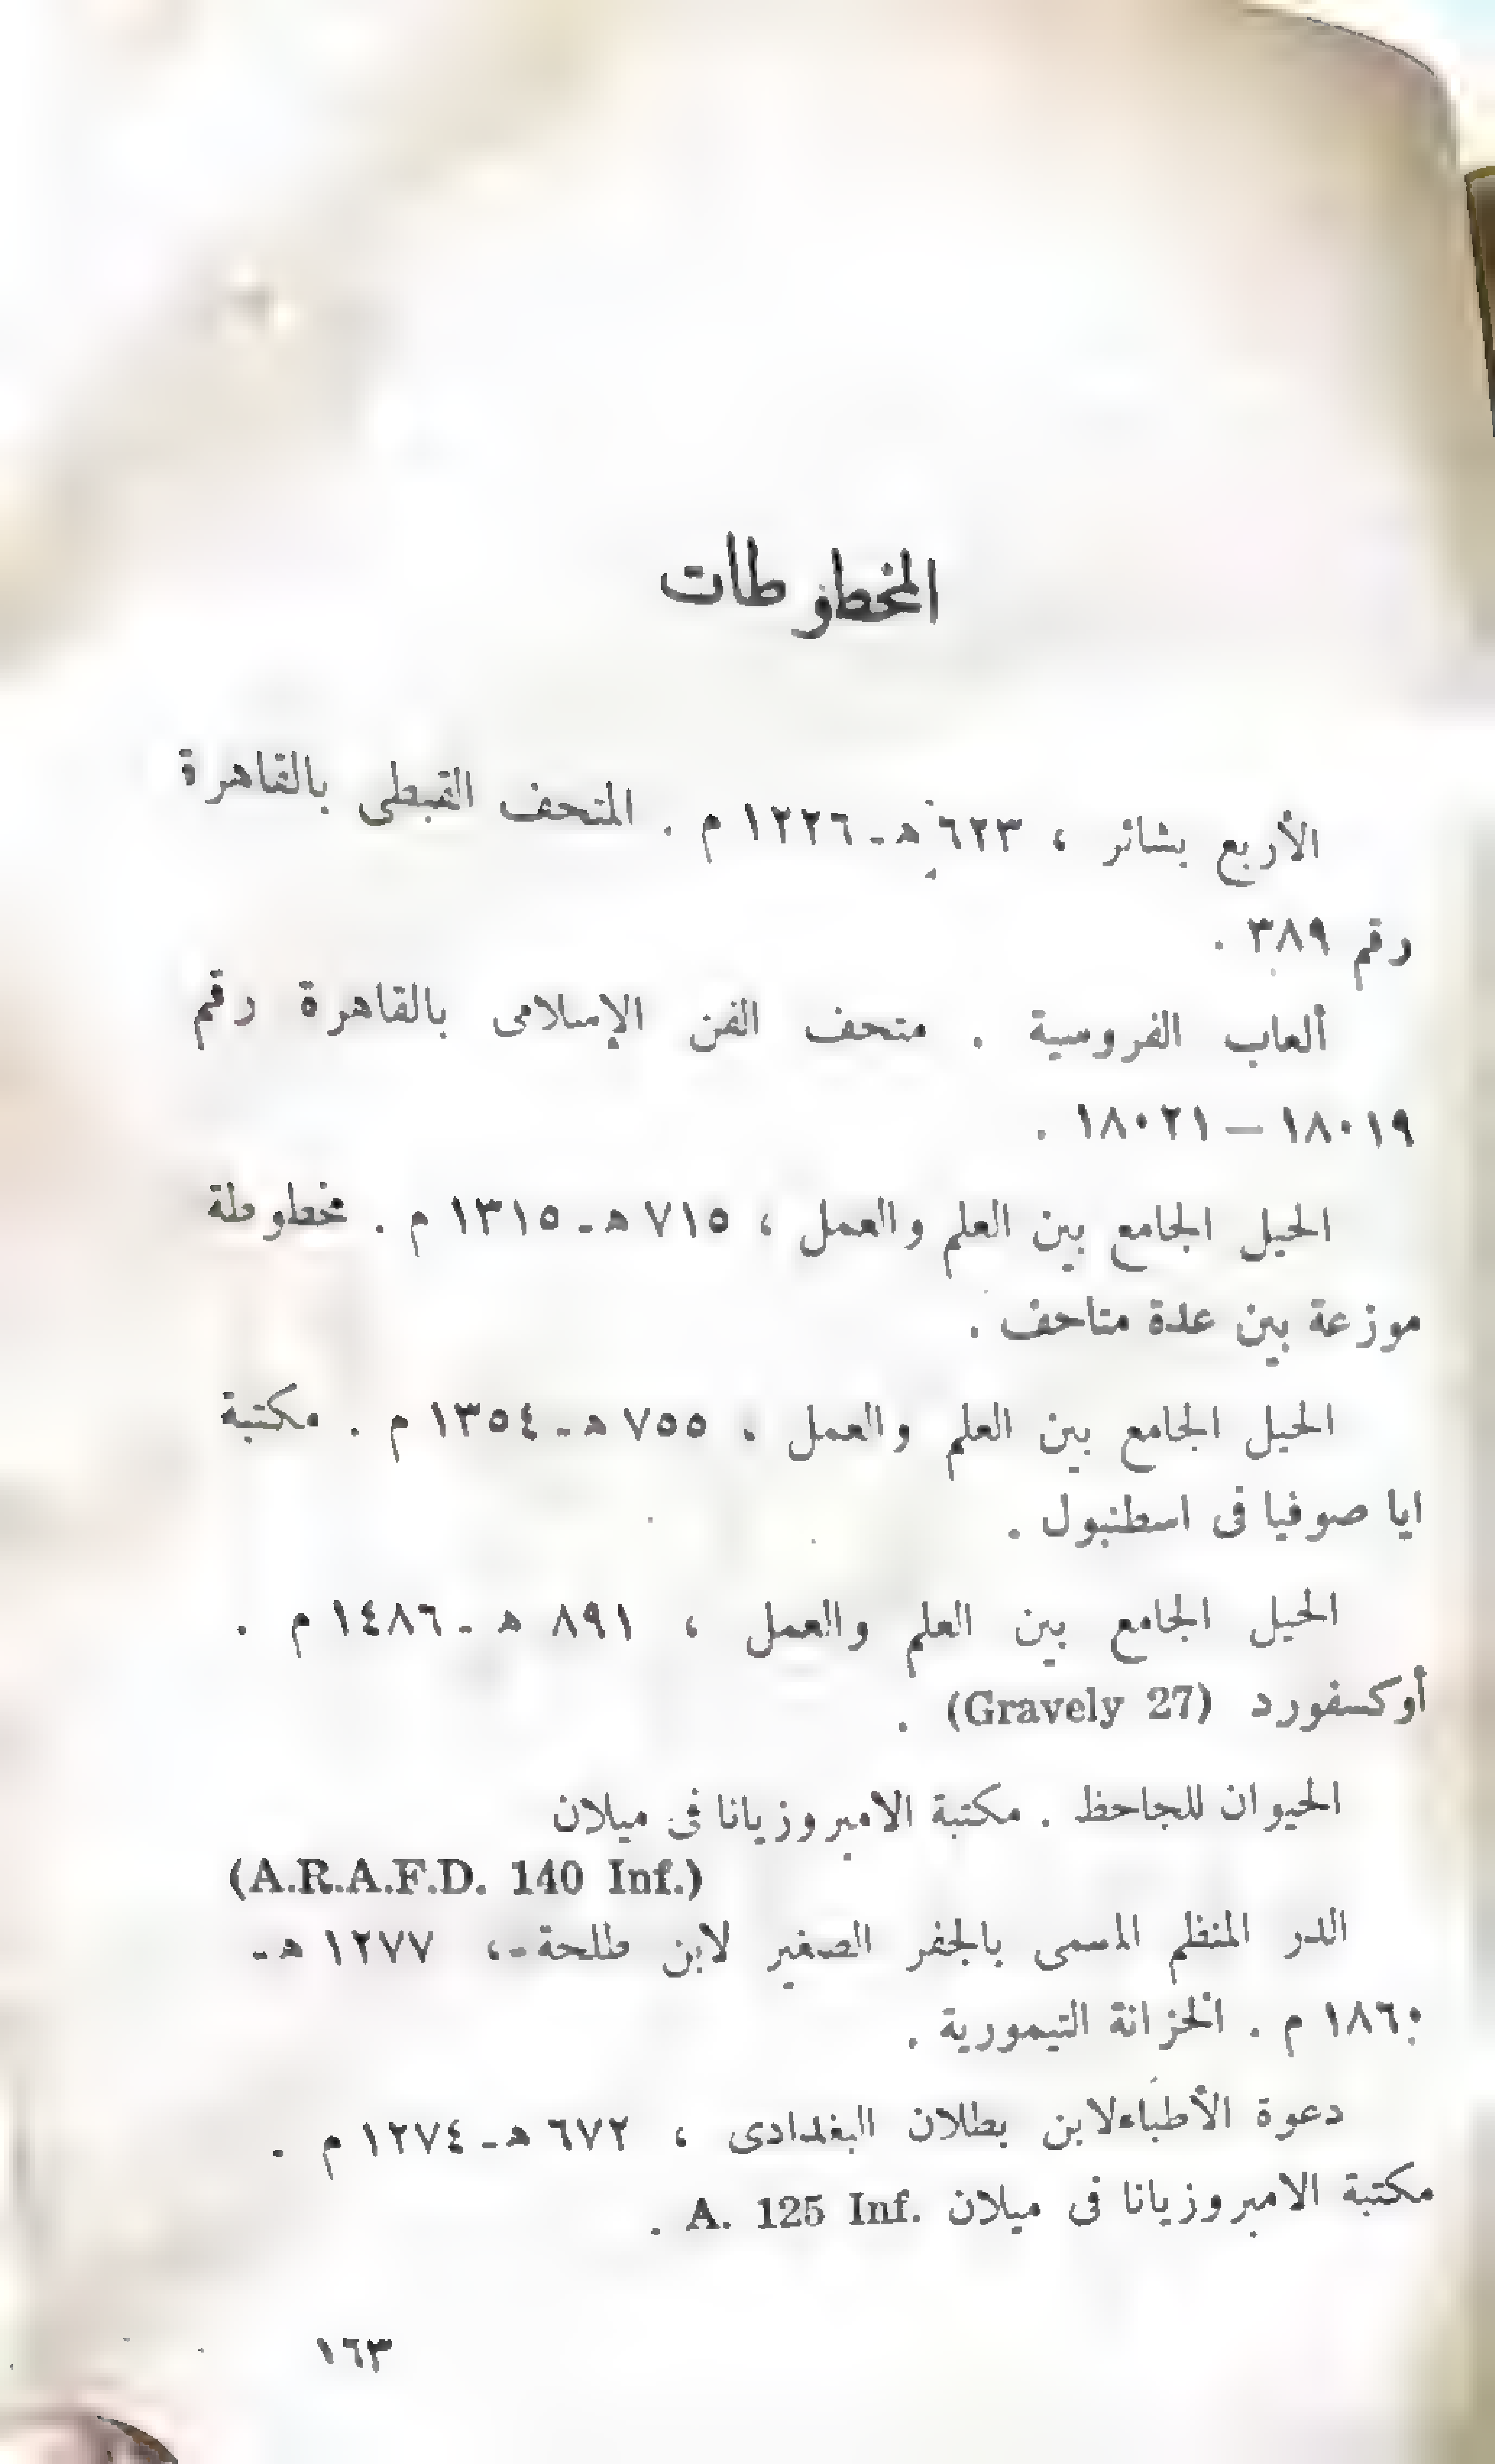 المخطوطات
الأربع بشائر ، ٦٢٣ هـ - ١٢٢٦ م . المتحف القبطى بالقاهرة
رقم ٣٨٩ .
ألعاب الفروسية . متحف الفن الإسلامى بالقاهرة رقم
١٨٠١٩ – ١٨٠٢١ .
الحيل الجامع بين العلم والعمل ، ٧١٥ هـ - ١٣١٥ م . مخطوطة
موزعة بين عدة متاحف .
الحيل الجامع بين العلم والعمل ، ٧٥٥ هـ - ١٣٥٤ م . مكتبة
ايا صوفيا فى اسطنبول .
الحيل الجامع بين العلم والعمل ، ٨٩١ هـ - ١٤٨٦ م .
أوكسفورد (Gravely 27) .
الحيوان للجاحظ . مكتبة الامبروزيانا فى ميلان
(A.R.A.F.D. 140 Inf.)
الدر المنظم المسمى بالجفر الصغير لابن طلحة - ، ١٢٧٧ هـ -
١٨٦٠ م . الخزانة التيمورية .
دعوة الأطباء لابن بطلان البغدادى ، ٦٧٢ هـ - ١٢٧٤ م .
مكتبة الامبروزيانا فى ميلان A. 125 Inf. .
١٦٣